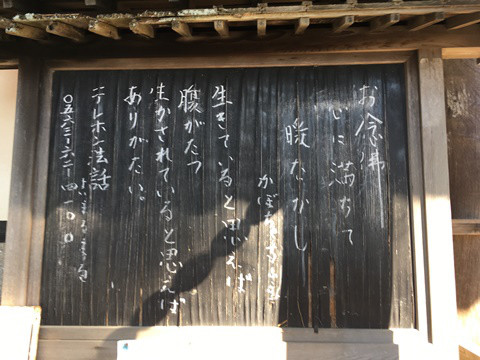 お念佛
いに満ちて
暖たかし
かぼ
生きていると思えば
腹がたつ
生かされていると思えば
ありがたい。
テレホン法話
〇五六三ー六二ー四一〇〇